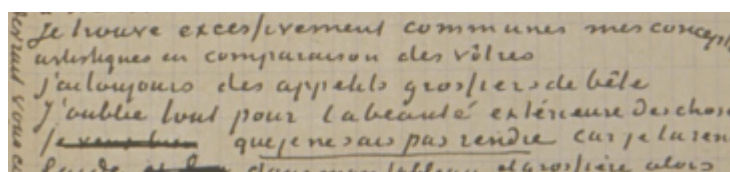 Je trouve excessivement communes mes concept
artistiques en comparaison des vôtres
j'ai toujours des appetits grossiers de bête
J'oublie tout pour la beauté extérieure des chose
que je ne sais pas rendre car je la ren
dans mon tableau et grossière alors